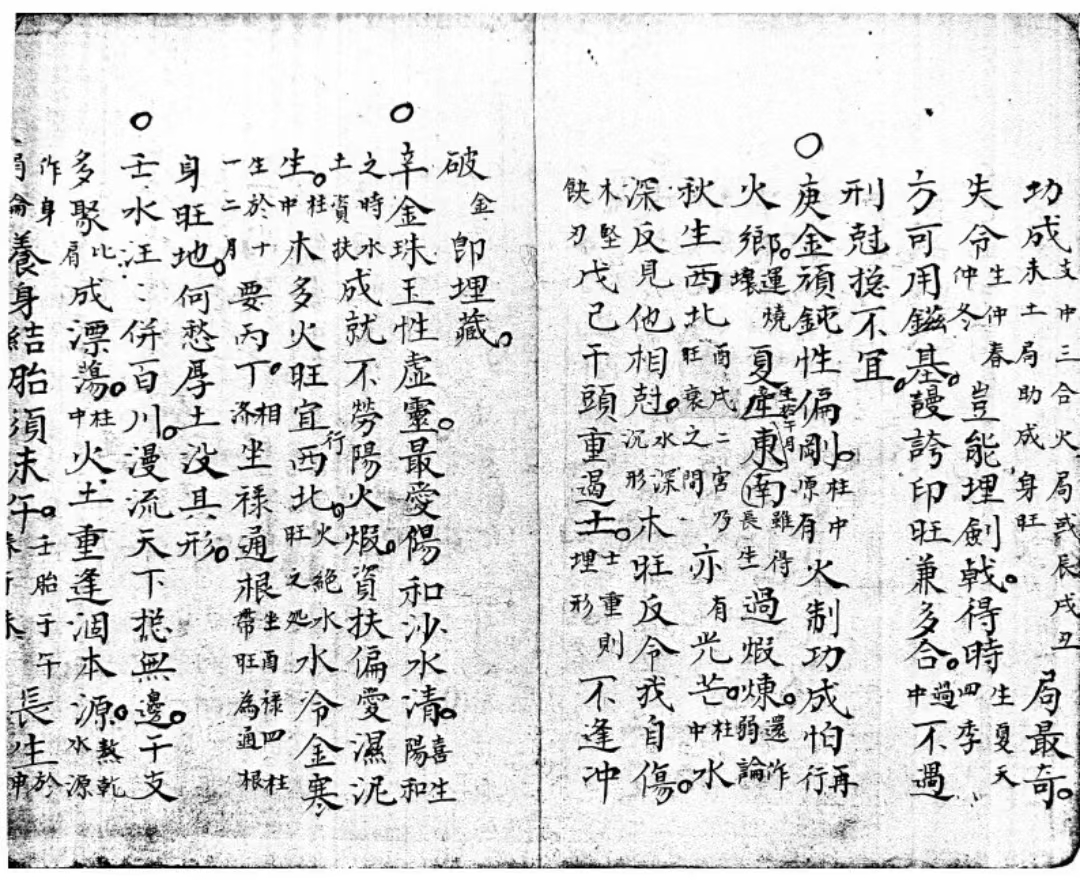 功成支中三合火局或辰戌丑未土局助成身旺局最奇。
失令生仲春仲冬豈能埋劍戟。得時生夏天四季
方可用鎡基。謾誇印旺兼多合。過中不過
刑尅捴不宜。
庚金頑鈍性偏剛。柱中原有火制功成怕再行
火鄉。運燒壞夏產生於午月東南雖得長生過煅煉。還作弱論
秋生西北酉戌二宮乃旺衰之間亦有光芒。柱中水
深反見他相尅。水深沉形木旺反令我自傷。
木堅缺刃戊己干頭重遏土。土重則埋形不逢冲
破金即埋藏。
辛金珠玉性虛靈。最愛陽和沙水清。喜生陽和
之時水土資扶成就不勞陽火煅。資扶偏愛濕泥
生。柱中木多火旺宜行西北。火絕水旺之処水冷金寒
生於十一二月要丙丁。相濟坐祿通根坐酉祿四柱帶旺為通根
身旺地。何愁厚土没其形。
壬水汪：併百川。漫流天下捴無邊。干支
多聚比肩成漂蕩。柱中火土重逢涸本源。熬乾水源
作身局論養身結胎須未午。壬胎于午長生於申